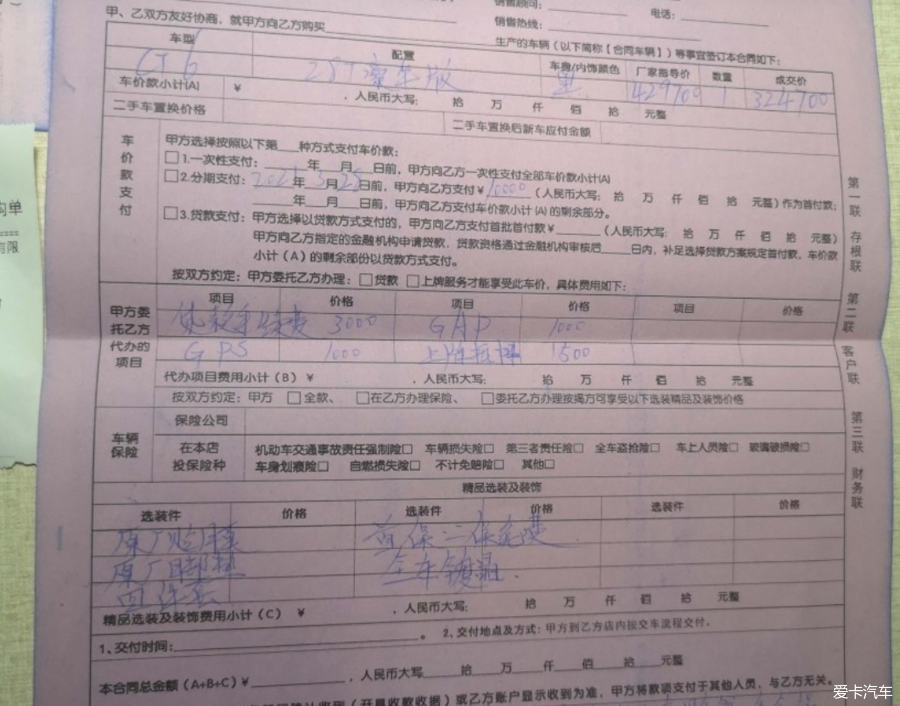 销售顾问：
电话：
销售热线：
甲、乙双方友好协商，就甲方向乙方购买
生产的车辆（以下简称【合同车辆】）等事宜签订本合同如下：
车型 配置 车身/内饰颜色 厂家指导价 数量 成交价
CT6 28T 豪华版 黑 429700 1 324700
车价款小计(A) ¥ ，人民币大写： 拾 万 仟 佰 拾 元整
二手车置换价格 二手车置换后新车应付金额
车价款支付
甲方选择按照以下第 种方式支付车价款：
□1.一次性支付： 年 月 日前，甲方向乙方一次性支付全部车价款小计(A)
□2.分期支付：2021年3月 日前，甲方向乙方支付¥10000（人民币大写： 拾 万 仟 佰 拾 元整）作为首付款；
年 月 日前，甲方向乙方支付车价款小计(A)的剩余部分。
□3.贷款支付：甲方选择以贷款方式支付的，甲方向乙方支付首批首付款¥ （人民币大写： 拾 万 仟 佰 拾 元整）
甲方向乙方指定的金融机构申请贷款，贷款资格通过金融机构审核后 日内，补足选择贷款方案规定首付款，车价款
小计（A）的剩余部份以贷款方式支付。
按双方约定：甲方委托乙方办理：□贷款 □上牌服务才能享受此车价，具体费用如下：
甲方委托乙方代办的项目
项目 价格 项目 价格 项目 价格
贷款手续费 3000 GAP 1000
GPS 1000 上牌抵押 1500
代办项目费用小计（B）¥ ，人民币大写： 拾 万 仟 佰 拾 元整
按双方约定：甲方 □全款、 □在乙方办理保险、 □委托乙方办理按揭方可享受以下选装精品及装饰价格
车辆保险
保险公司
在本店投保险种
机动车交通事故责任强制险□ 车辆损失险□ 第三者责任险□ 全车盗抢险□ 车上人员险□ 玻璃破损险□
车身划痕险□ 自燃损失险□ 不计免赔险□ 其他□
精品选装及装饰
选装件 价格 选装件 价格 选装件 价格
原厂贴膜 首保二保免费
原厂脚垫 全车镀晶
精品选装及装饰费用小计（C） ¥ ，人民币大写： 拾 万 仟 佰 拾 元整
1、交付时间： 。 2、交付地点及方式：甲方到乙方店内按交车流程交付。
本合同总金额（A+B+C）¥ ，人民币大写 拾 万 仟 佰 拾 元整
（开具收款收据）或乙方账户显示收到为准，甲方将款项支付于其他人员，与乙方无关。
第一联 存根联
第二联 客户联
第三联 财务联
购单
有限
爱卡汽车